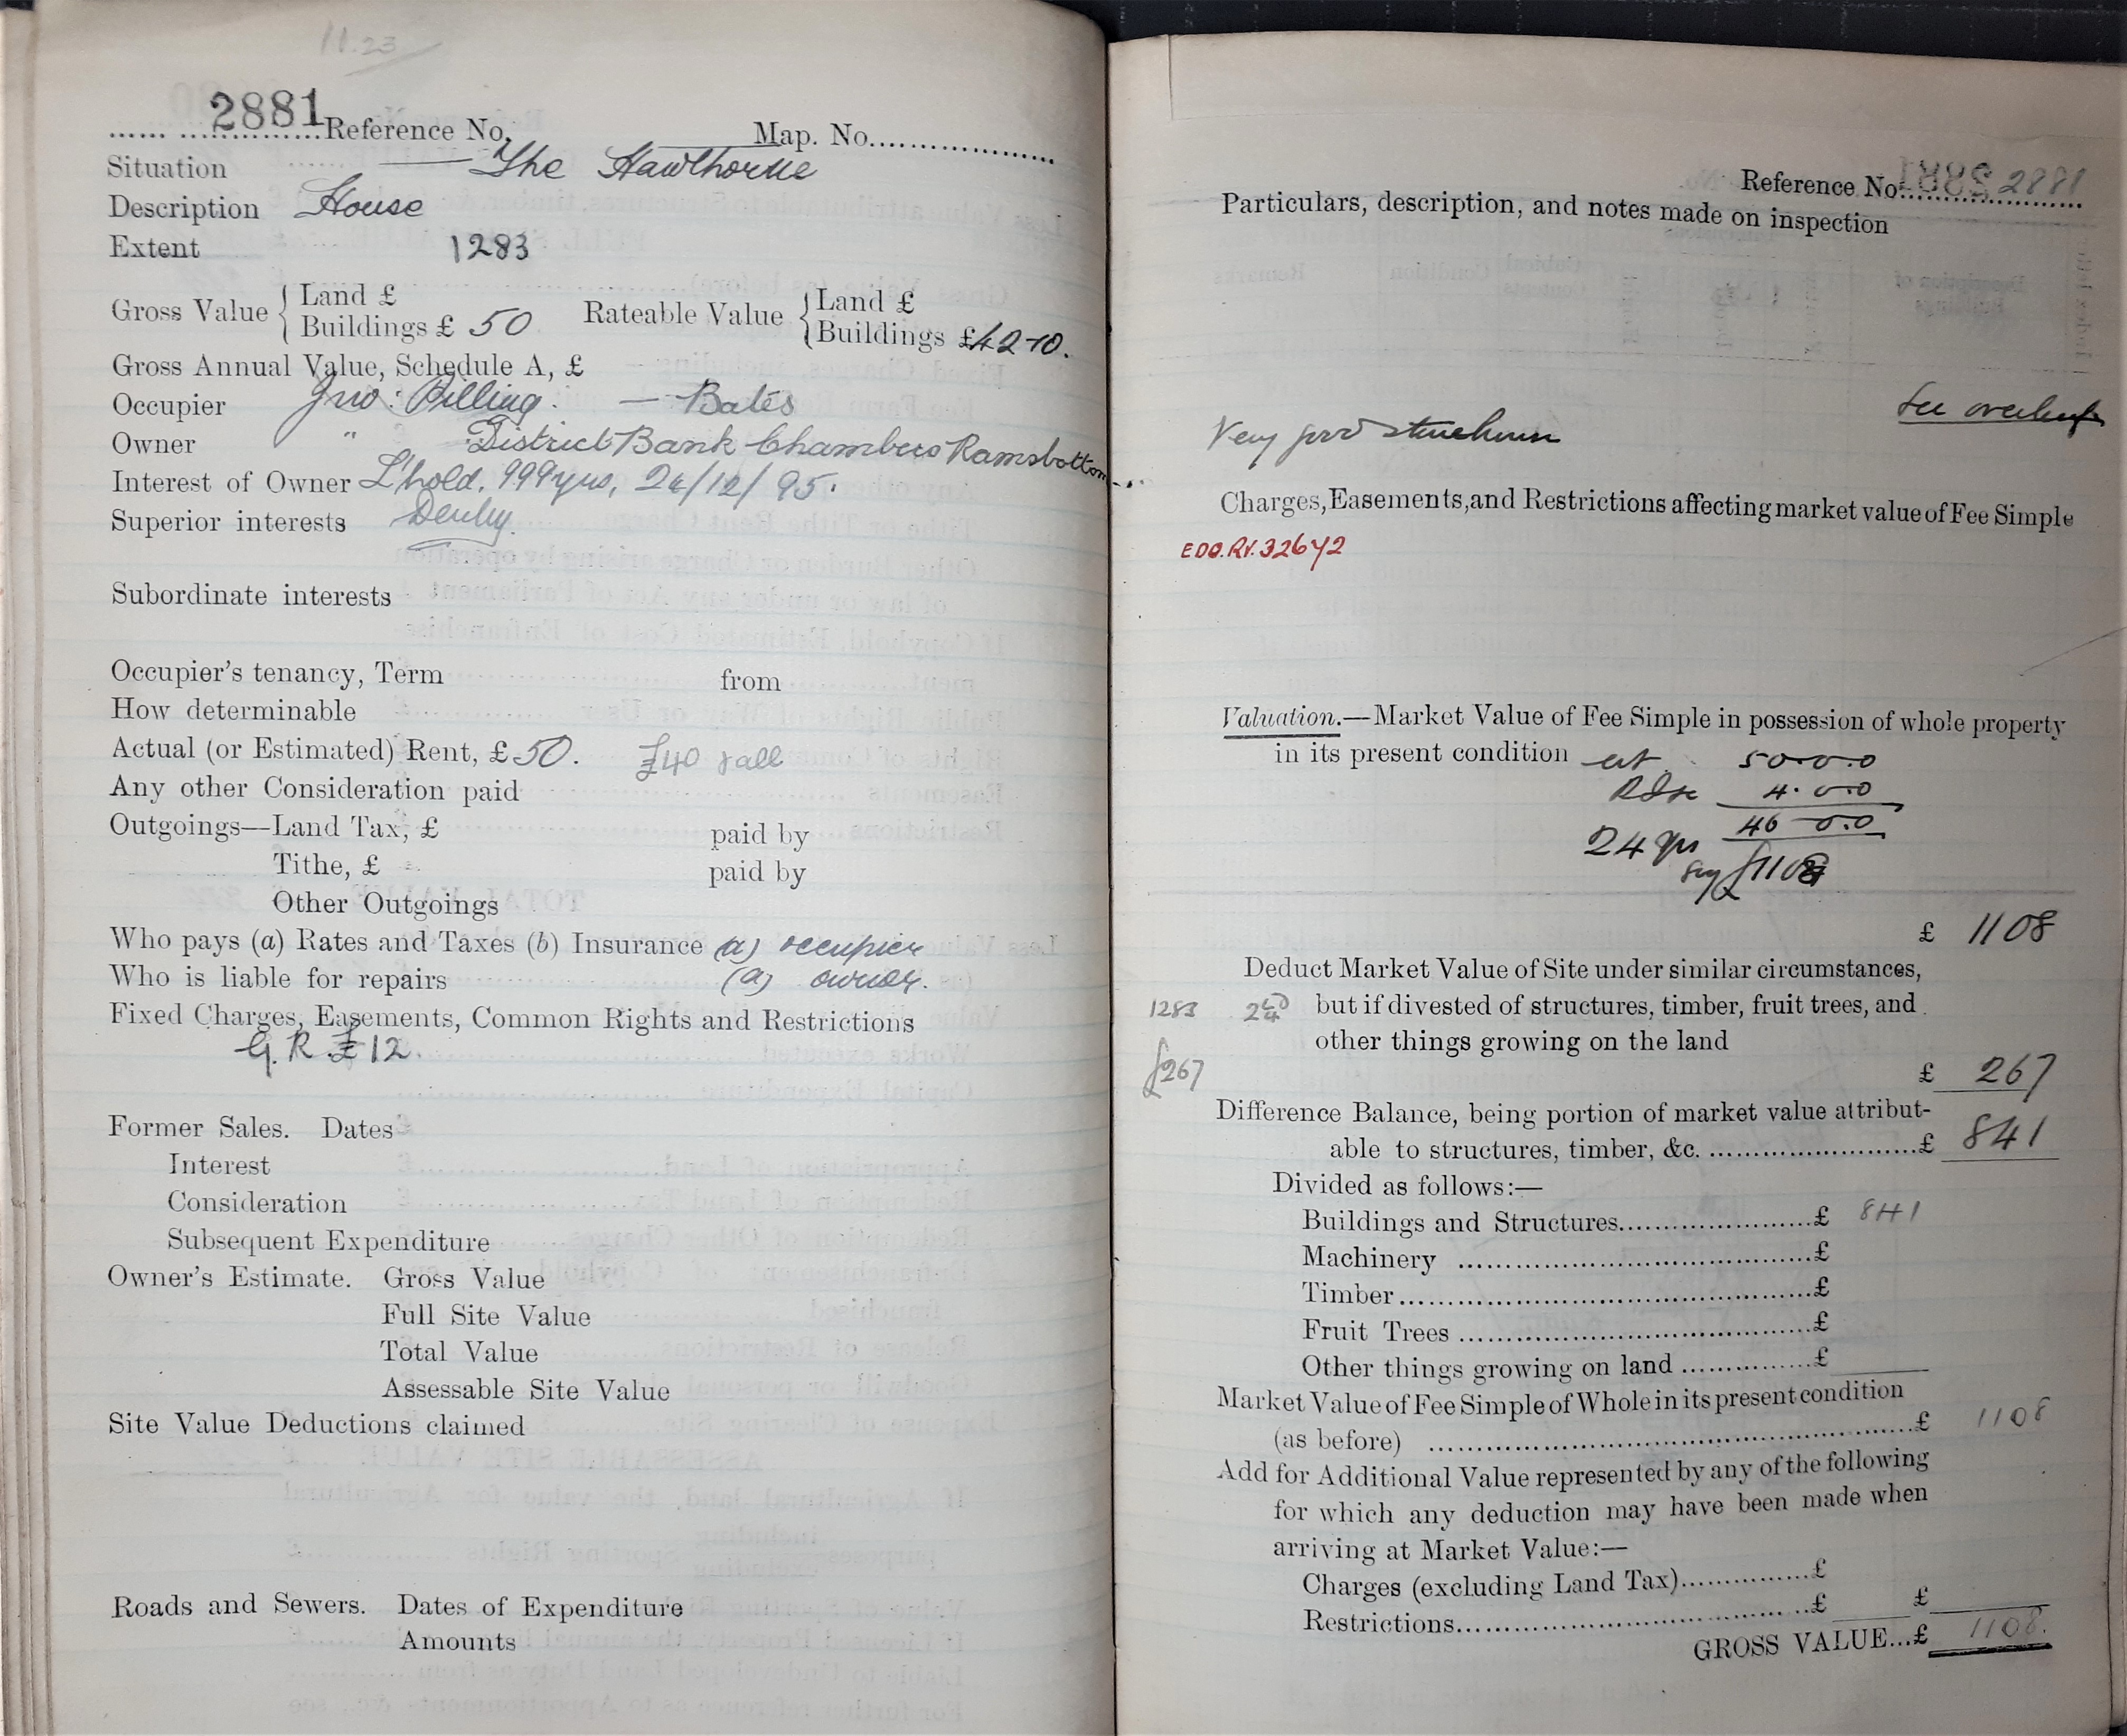 11.23
2881 Reference No. Map. No.
Situation — The Hawthorne
Description House
Extent 1283
Gross Value { Land £
Buildings £ 50 Rateable Value { Land £
Buildings £42-10.
Gross Annual Value, Schedule A, £
Occupier Jno: Pilling. — Bates
Owner " District Bank Chambers Ramsbottom
Interest of Owner L'hold. 999 yrs, 24/12/95.
Superior interests Derby.
Subordinate interests
Occupier's tenancy, Term from
How determinable
Actual (or Estimated) Rent, £ 50. £40
Any other Consideration paid
Outgoings—Land Tax, £ paid by
Tithe, £ paid by
Other Outgoings
Who pays (a) Rates and Taxes (b) Insurance (a) occupier
Who is liable for repairs (a) owner.
Fixed Charges, Easements, Common Rights and Restrictions
G. R. £12.
Former Sales. Dates
Interest
Consideration
Subsequent Expenditure
Owner's Estimate. Gross Value
Full Site Value
Total Value
Assessable Site Value
Site Value Deductions claimed
Roads and Sewers. Dates of Expenditure
Amounts
Reference No. 2881
Particulars, description, and notes made on inspection
See overleaf
Very good stone house
Charges, Easements, and Restrictions affecting market value of Fee Simple
EDO.RV.32642
Valuation.—Market Value of Fee Simple in possession of whole property
in its present condition est 50.0.0
4.0.0
46 0.0
24 yrs
say £1108
£ 1108
Deduct Market Value of Site under similar circumstances,
1283 but if divested of structures, timber, fruit trees, and
other things growing on the land
£267 £ 267
Difference Balance, being portion of market value attribut-
able to structures, timber, &c. £ 841
Divided as follows:—
Buildings and Structures £ 841
Machinery £
Timber £
Fruit Trees £
Other things growing on land £
Market Value of Fee Simple of Whole in its present condition
(as before) £ 1108
Add for Additional Value represented by any of the following
for which any deduction may have been made when
arriving at Market Value:—
Charges (excluding Land Tax) £
Restrictions £ £
GROSS VALUE...£ 1108.